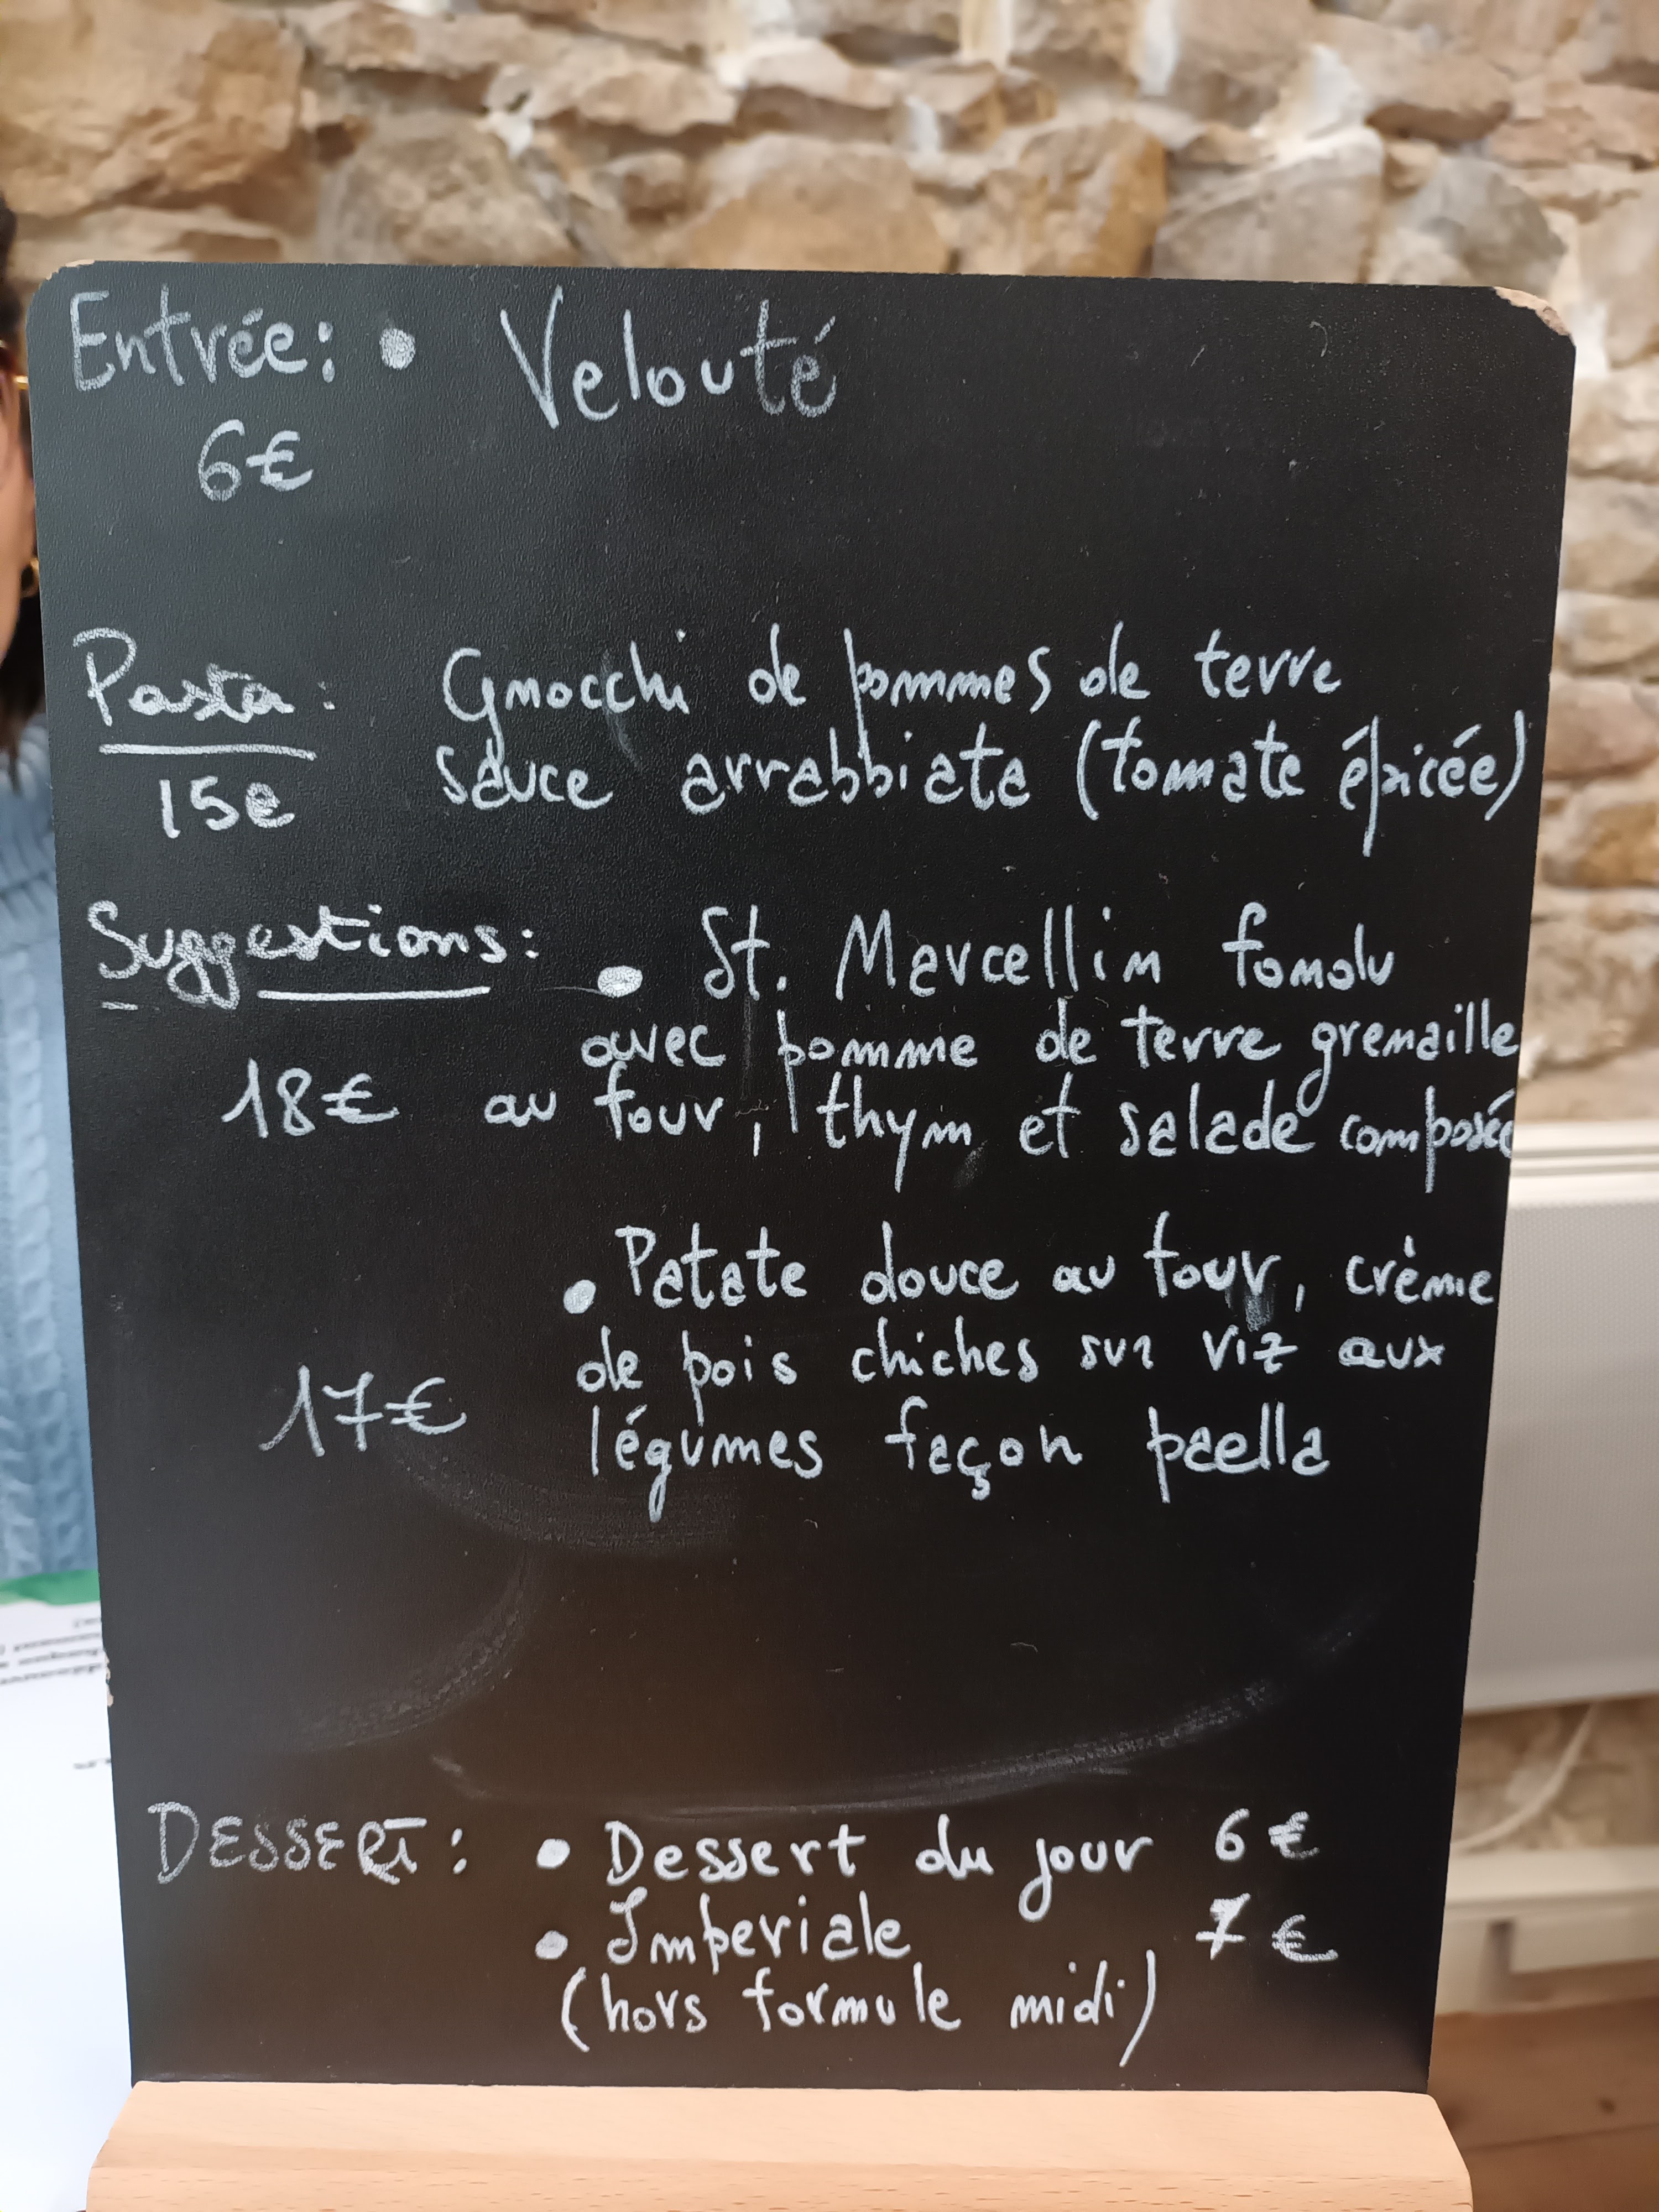 Entrée: • Velouté
6€
Pasta: Gnocchi de pommes de terre
15e sauce arrabbiata (tomate épicée)
Suggestions: • St. Marcellin fondu
avec pomme de terre grenaille
18€ au four, thym et salade composée
• Patate douce au four, crème
de pois chiches sur riz aux
17€ légumes façon paella
DESSERT: • Dessert du jour 6€
• Imperiale 7€
(hors formule midi)